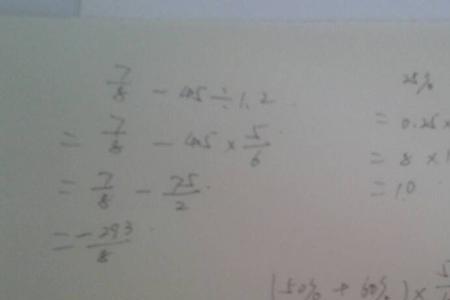 7/8 - 45 ÷ 1.2
= 7/8 - 45 × 5/6
= 7/8 - 75/2
= -293/8
25%
= 0.25 ×
= 8 ×
= 10
(50% + 60%) × 5